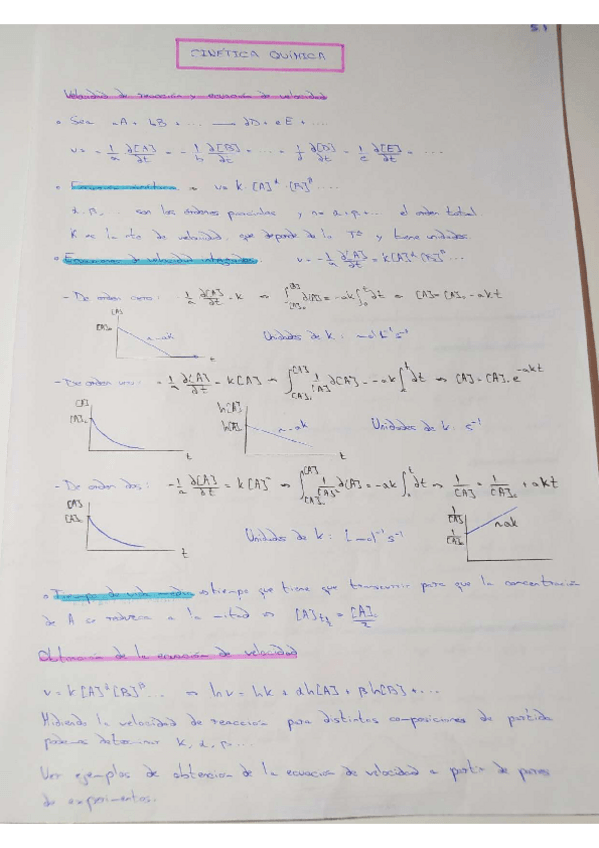 5.1
CINÉTICA QUÍMICA
Velocidad de reacción y ecuación de velocidad
• Sea aA + bB + ... — dD + eE + ...
v = -1/a ∂[A]/∂t = -1/b ∂[B]/∂t = ... = 1/d ∂[D]/∂t = 1/e ∂[E]/∂t = ...
• v = k [A]^α · [B]^β ...
α, β, ... son los órdenes parciales y n = α + β + ... el orden total
K es la cte de velocidad, que depende de la Tª y tiene unidades.
• Ecuaciones de velocidad integradas: v = -1/a ∂[A]/∂t = k[A]^α[B]^β ...
- De orden cero: -1/a ∂[A]/∂t = k ⇒ ∫_{[A]₀}^{[A]} ∂[A] = -ak ∫₀^t ∂t ⇒ [A] = [A]₀ - akt
[A]
[A]₀
m = -ak
t
Unidades de k: mol L⁻¹ s⁻¹
- De orden uno: -1/a ∂[A]/∂t = k[A] ⇒ ∫_{[A]₀}^{[A]} 1/[A] ∂[A] = -ak ∫₀^t ∂t ⇒ [A] = [A]₀ e^{-akt}
[A]
[A]₀
t
ln[A]
ln[A]₀
m = -ak
t
Unidades de k: s⁻¹
- De orden dos: -1/a ∂[A]/∂t = k[A]² ⇒ ∫_{[A]₀}^{[A]} 1/[A]² ∂[A] = -ak ∫₀^t ∂t ⇒ 1/[A] = 1/[A]₀ + akt
[A]
[A]₀
t
Unidades de k: L mol⁻¹ s⁻¹
1/[A]
1/[A]₀
m = ak
• Tiempo de vida media: tiempo que tiene que transcurrir para que la concentración
de A se reduzca a la mitad ⇒ [A]_{t½} = [A]₀/2
Obtención de la ecuación de velocidad
v = k[A]^α[B]^β ... ⇒ ln v = ln k + α ln[A] + β ln[B] + ...
Midiendo la velocidad de reacción para distintas composiciones de partida
podemos determinar k, α, β ...
Ver ejemplos de obtención de la ecuación de velocidad a partir de pares
de experimentos.